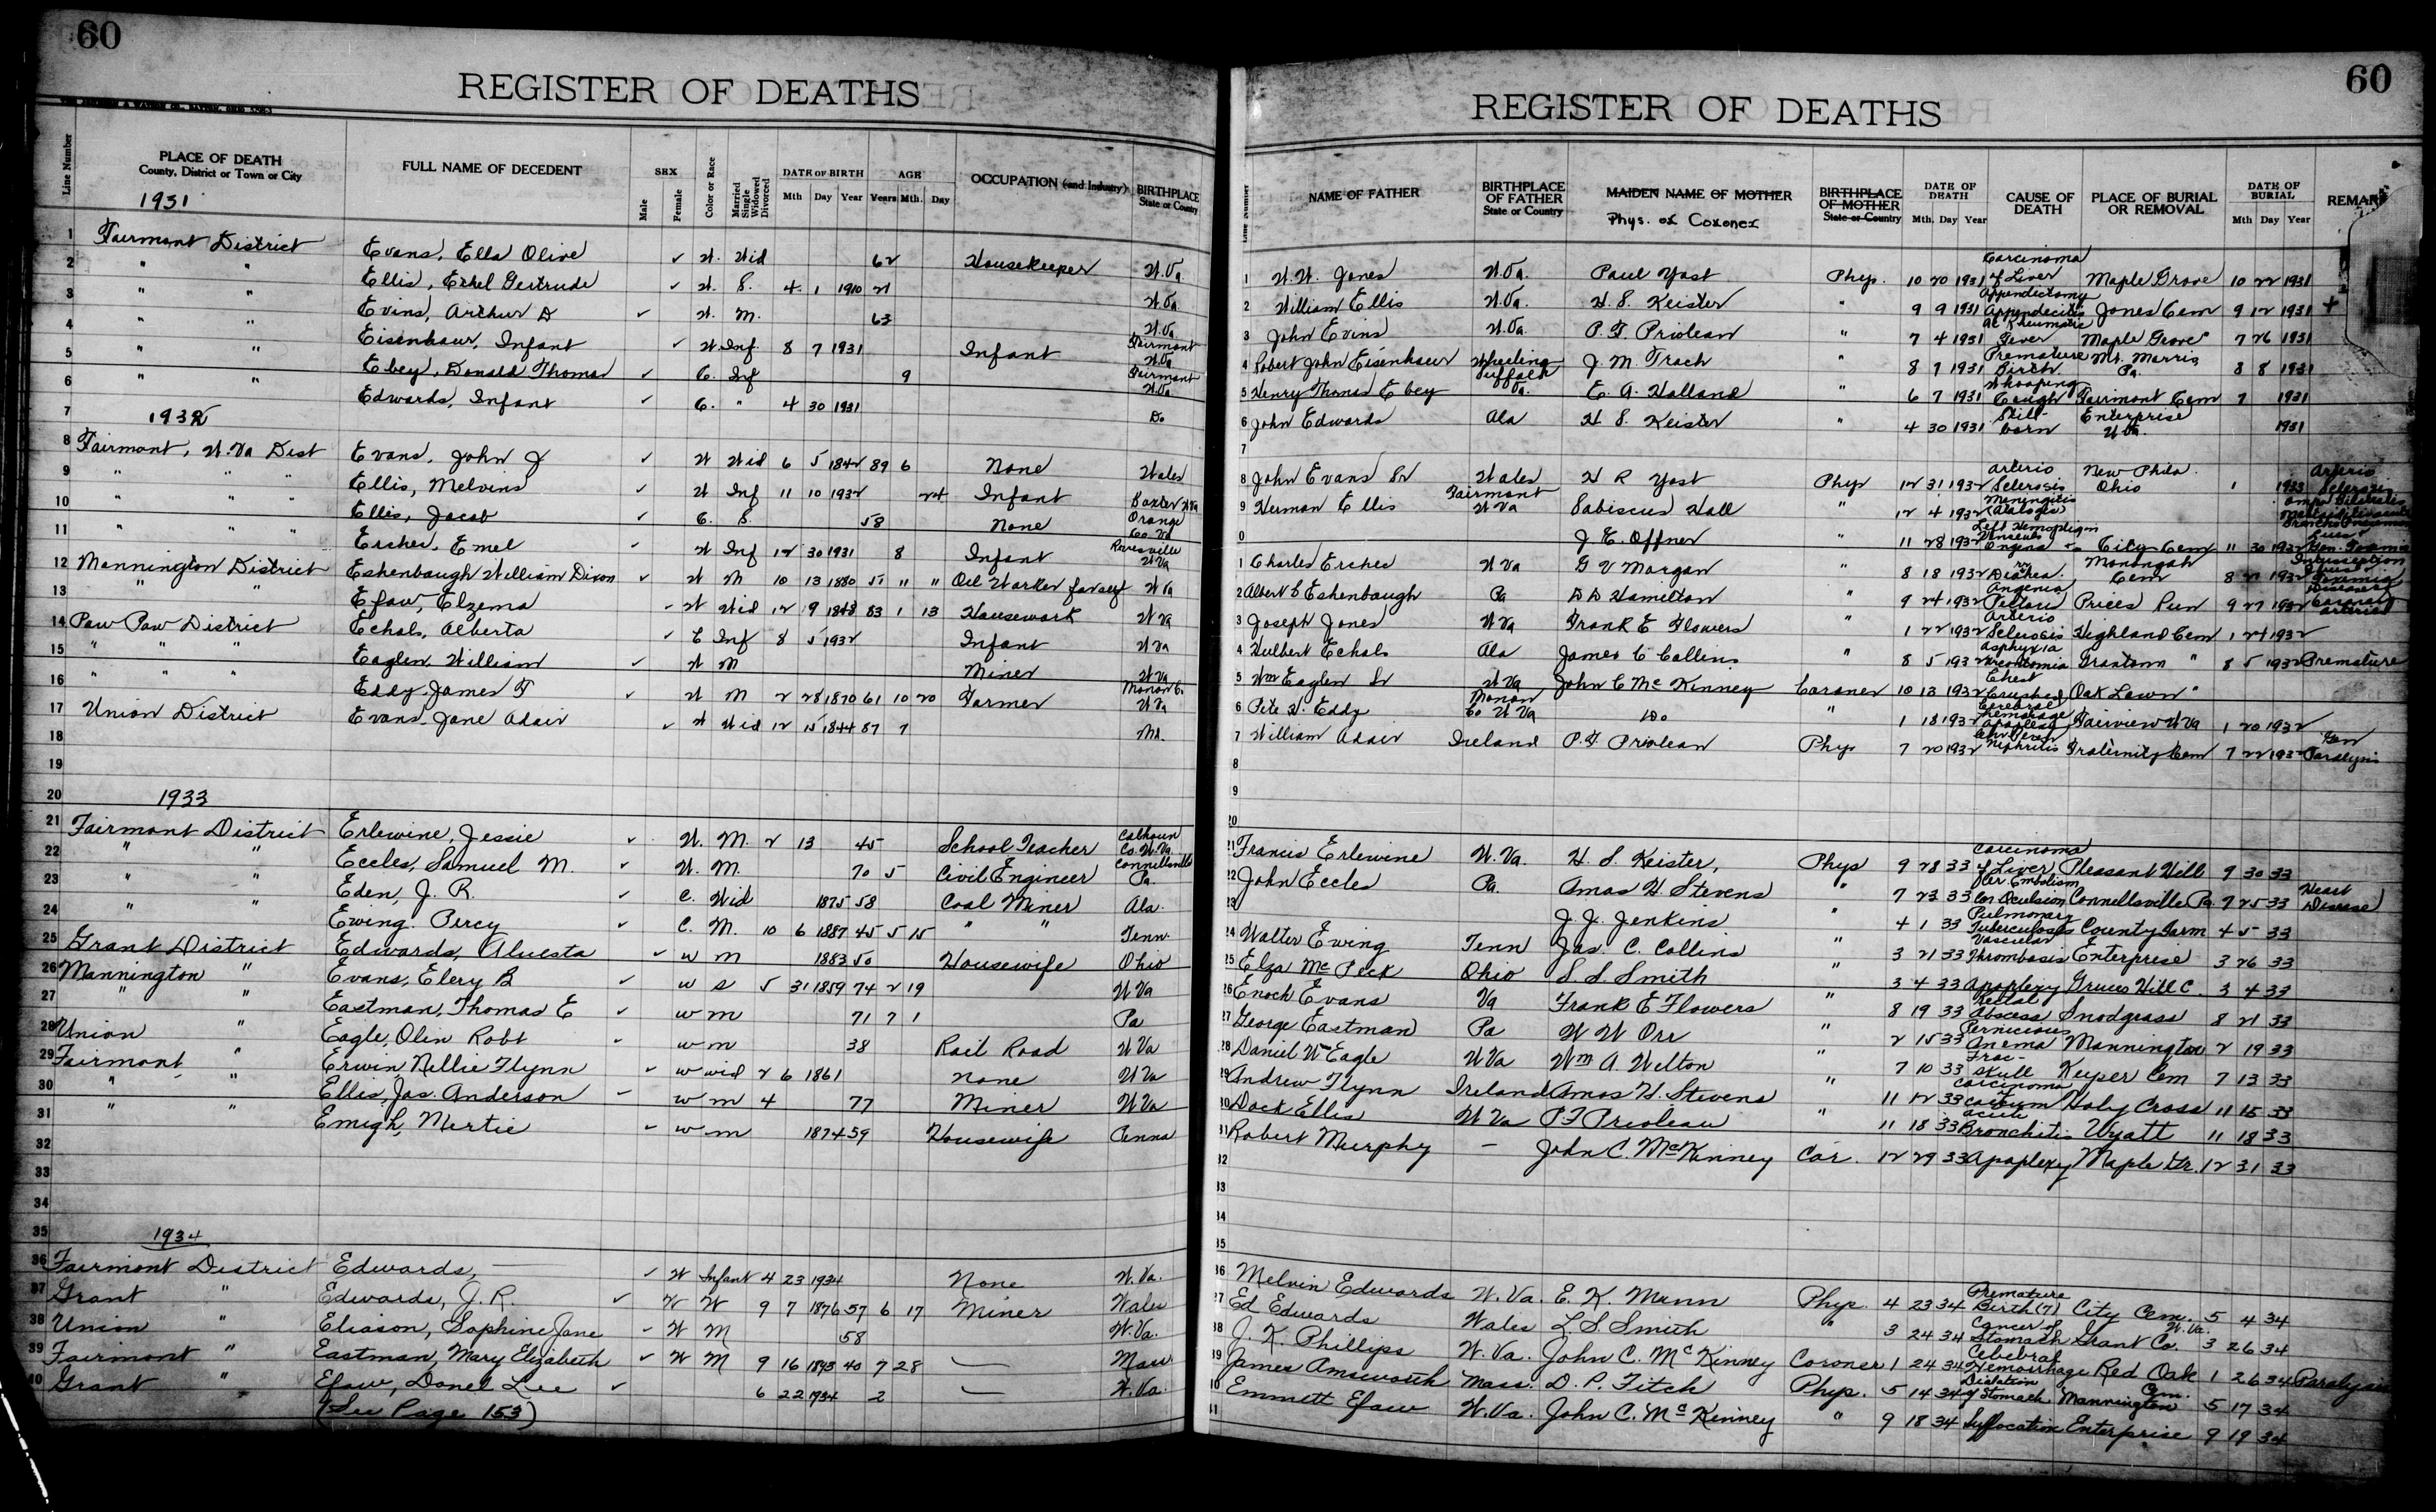 60
REGISTER OF DEATHS
Line Number
PLACE OF DEATH County, District or Town or City
FULL NAME OF DECEDENT
SEX Male Female
Color or Race
Married Single Widowed Divorced
DATE OF BIRTH Mth Day Year
AGE Years Mth. Day
OCCUPATION (and Industry)
BIRTHPLACE State or Country
1931
1 Fairmont District Evans, Ella Olive ✓ W. Wid 62 Housekeeper W.Va
2 " " Ellis, Ethel Gertrude ✓ W. S. 4 1 1910 21 W.Va.
3 " " Evins, Arthur D ✓ W. M. 63 W.Va
4 " " Eisenhaur, Infant ✓ W. Inf. 8 7 1931 Infant Fairmont W.Va
5 " " Ebey, Donald Thomas ✓ C. Inf 9 Fairmont W.Va
6 " " Edwards, Infant ✓ C. " 4 30 1931 Do
7 1932
8 Fairmont, W.Va Dist Evans, John J ✓ W Wid 6 5 1842 89 6 None Wales
9 " " " Ellis, Melvins ✓ W Inf 11 10 1932 24 Infant Baxter W.Va
10 " " " Ellis, Jacob ✓ C. S. 58 None Orange Co. Va
11 " " " Escher, Emel ✓ W Inf 12 30 1931 8 Infant Rivesville W Va
12 Mannington District Eshenbaugh William Dixon ✓ W M 10 13 1880 51 11 11 Oil Worker for self W Va
13 " " Efaw, Elzema ✓ W Wid 12 9 1848 83 1 13 Housework W Va
14 Paw Paw District Echols, Alberta ✓ C Inf 8 5 1932 Infant W Va
15 " " " Eaglen, William ✓ W M Miner W Va
16 " " " Eddy, James F ✓ W M 2 28 1870 61 10 20 Farmer Monon Co. W Va
17 Union District Evans, Jane Adair ✓ W Wid 12 15 1844 87 7 Md.
18
19
20 1933
21 Fairmont District Erlewine, Jessie ✓ W. M. 2 13 45 School Teacher Calhoun Co. W.Va.
22 " " Eccles, Samuel M. ✓ W. M. 70 5 Civil Engineer Connellsville Pa.
23 " " Eden, J. R. ✓ C. Wid 1875 58 Coal Miner Ala.
24 " " Ewing. Percy ✓ C. M. 10 6 1887 45 5 15 " " Tenn.
25 Grant District Edwards, Aluesta ✓ w m 1883 50 Housewife Ohio
26 Mannington " Evans, Elery B ✓ w s 5 31 1859 74 2 19 W Va
27 " " Eastman, Thomas E ✓ w m 71 7 1 Pa
28 Union " Eagle, Olin Robt ✓ w m 38 Rail Road W Va
29 Fairmont " Erwin, Nellie Flynn ✓ w wid 2 6 1861 none W Va
30 " " Ellis, Jas. Anderson ✓ w m 4 77 Miner W Va
31 " " Emigh, Mertie ✓ w m 1874 59 Housewife Penna
32
33
34
35 1934
36 Fairmont District Edwards, — ✓ W Infant 4 23 1934 None W.Va.
37 Grant " Edwards, J. R. ✓ W W 9 7 1876 57 6 17 Miner Wales
38 Union " Eliason, Sophine Jane ✓ W M 58 W.Va.
39 Fairmont " Eastman, Mary Elizabeth ✓ W M 9 16 1893 40 7 28 — Mass
40 Grant " Efaw, Donel Lee ✓ 6 22 1934 2 — W.Va.
(See Page 153)
60
REGISTER OF DEATHS
NAME OF FATHER
BIRTHPLACE OF FATHER State or Country
MAIDEN NAME OF MOTHER
Phys. or Coroner
BIRTHPLACE OF MOTHER State or Country
DATE OF DEATH Mth. Day Year
CAUSE OF DEATH
PLACE OF BURIAL OR REMOVAL
DATE OF BURIAL Mth Day Year
REMARK
1 W.W. Jones W.Va. Paul Yost Phys. 10 20 1931 Carcinoma of Liver Maple Grove 10 22 1931
2 William Ellis W.Va. H. S. Keister " 9 9 1931 Appendictomy Appendecitis Jones Cem 9 12 1931 +
3 John Evins W.Va. P. F. Prioleau " 7 4 1931 Ac Rheumatic Fever Maple Grove 7 26 1931
4 Robert John Eisenhaur Wheeling J. M. Trach " 8 7 1931 Premature Birth Mt. Morris Pa. 8 8 1931
5 Henry Thomas Ebey Suffolk Va. E. A. Holland " 6 7 1931 Whooping Cough Fairmont Cem 7 1931
6 John Edwards Ala H. S. Keister " 4 30 1931 Still-born Enterprise W Va. 1931
7
8 John Evans Sr Wales H R Yost Phys 12 31 1932 Arterio Sclerosis New Phila. Ohio 1 1933 Arterio Sclerosis
9 Herman Ellis Fairmont W Va Sabiscus Hall " 12 4 1932 Meningitis
0 J. E. Offner " 11 28 1932 City Cem 11 30 1932
1 Charles Escher W Va G V Morgan " 8 18 1932 Monongah Cem 8 1932
2 Albert S Eshenbaugh Pa D D Hamilton " 9 24 1932 Angenia Prices Run 9 27 1932
3 Joseph Jones W Va Frank E Flowers " 1 22 1932 Arterio Sclerosis Highland Cem 1 24 1932
4 Hulbert Echols Ala James C Collins " 8 5 1932 Asphyxia Grantown " 8 5 1932 Premature
5 Wm Eaglen Sr W Va John C McKinney Coroner 10 13 1932 Chest Crushed Oak Lawn "
6 Pete H. Eddy Monon Co W Va Do " 1 18 1932 Cerebral Hemorage Apoplexy Fairview W Va 1 20 1932
7 William Adair Ireland P. F. Prioleau Phys 7 20 1932 Nephritis Fraternity Cem 7 22 1932 Gen Paralysis
8
9
20
21 Francis Erlewine W.Va. H. S. Keister, Phys 9 28 33 Carcinoma of Liver Pleasant Hill 9 30 33
22 John Eccles Pa. Amos H. Stevens " 7 23 33 Cer Embolism Cor Oculsion Connellsville Pa 7 25 33 Heart Disease
23 J. J. Jenkins " 4 1 33 Pulmonary Tuberculosis County Farm 4 5 33
24 Walter Ewing Tenn Jas. C. Collins " 3 21 33 Vascular Thrombosis Enterprise 3 26 33
25 Elza McPeck Ohio S. S. Smith " 3 4 33 Apoplexy Hill C. 3 4 33
26 Enoch Evans Va Frank E Flowers " 8 19 33 Abscess Snodgrass 8 21 33
27 George Eastman Pa W W Orr " 2 15 33 Pernicious Anema Mannington 2 19 33
28 Daniel Wm Eagle W Va Wm A. Welton " 7 10 33 Frac- skull Keyser Cem 7 13 33
29 Andrew Flynn Ireland Amos H. Stevens " 11 12 33 Carcinoma Holy Cross 11 15 33
30 Dock Ellis W Va P F Prioleau " 11 18 33 acute Bronchitis Wyatt 11 18 33
31 Robert Murphy — John C. McKinney Cor. 12 29 33 Apoplexy Maple Gr. 12 31 33
32
33
34
35
36 Melvin Edwards W.Va. E. K. Munn Phys. 4 23 34 Premature Birth (7) City Cem. 5 4 34
37 Ed Edwards Wales L. S. Smith " 3 24 34 Cancer of Stomach Grant Co. W.Va. 3 26 34
38 J. K. Phillips W.Va. John C. McKinney Coroner 1 24 34 Cebebral Hemorrhage Red Oak 1 26 34 Paralysis
39 James Amsworth Mass. D. P. Fitch Phys. 5 14 34 Dialation of Stomach Mannington Cem. 5 17 34
40 Emmett Efaw W.Va. John C. McKinney " 9 18 34 Suffocation Enterprise 9 19 34
41